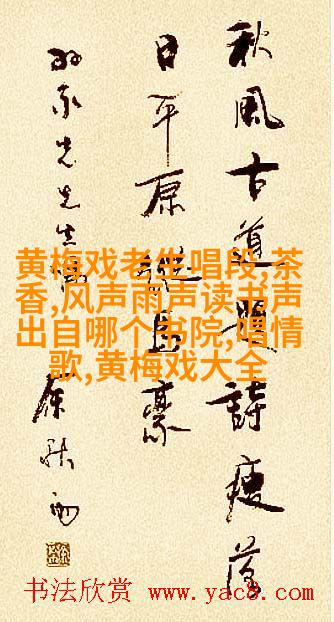 秋風古道題詩瘦落
日平原縱馬豪
先生
余秋雨
黄梅戏老生唱段,茶
香,风声雨声读书声
出自哪个书院,唱情
歌,黄梅戏大全
书法欣赏 www.yac8.com